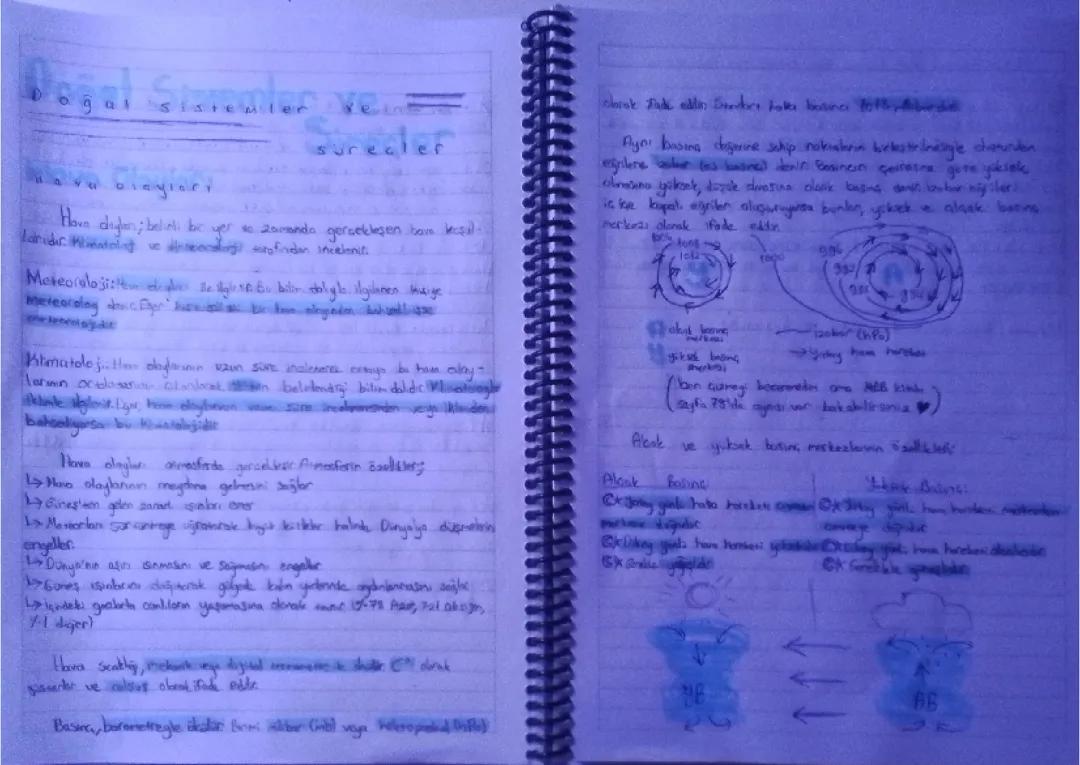 Doğal Sistemler ve
Süreçler
Hava olayları
Hava olayları; belirli bir yer ve zamanda gerçekleşen hava koşul-
larıdır. Klimatoloji ve meteoroloji tarafından incelenir.
Meteoroloji: Hava olayları ile ilgilenir. Bu bilim dalıyla ilgilenen kişiye
meteorolog denir. Eğer bir hava olayından
Klimatoloji: Hava olaylarının uzun süre incelenerek ortaya bu hava olay-
larının ortalamasının alınılarak belirlendiği bilim dalıdır. Klimatoloji
iklimle ilgilenir. Eğer, hava olaylarının uzun süre incelenmesinden veya iklimden
bahsediyorsa bu klimatolojidir
Hava olayları atmosferde gerçekleşir. Atmosferin özellikleri;
↳ Hava olaylarının meydana gelmesini sağlar
↳ Güneş'ten gelen zararlı ışınları emer
↳ Meteorları sürtünmeye uğratarak büyük kütleler halinde Dünya'ya düşmelerini
engeller.
↳ Dünya'nın aşırı ısınmasını ve soğumasını engeller
↳ Güneş ışınlarını dağıtarak gölgede kalan yerlerinde aydınlanmasını sağlar
↳ İçindeki gazlarla canlıların yaşamasına olanak sunar (%78 Azot, %21 oksijen,
%1 diğer)
Hava sıcaklığı, mekanik veya dijital termometre ile ölçülür. C° olarak
gösterilir ve celsius olarak ifade edilir.
Basınç, barometreyle ölçülür. Birimi milibar (mb) veya hektopaskal (hPa)
olarak ifade edilir. Standart hava basıncı 1013
Aynı basınç değerine sahip noktaların birleştirilmesiyle oluşturulan
eğrilere izobar (eş basınç) denir. Basıncın çevresine göre yüksek
olmasına yüksek, düşük olmasına alçak basınç denir. İzobar eğrileri
iç içe kapalı eğriler oluşturuyorsa bunlar, yüksek ve alçak basınç
merkezi olarak ifade edilir.
1008
1012
Y
1000
996
992
A
A alçak basınç
merkezi
Y yüksek basınç
merkezi
izobar (hPa)
→ Yatay hava hareketi
(ben çizmeyi beceremedim ama MEB kitabı
sayfa 78'de aynısı var bakabilirsiniz ♥)
Alçak ve yüksek basınç merkezlerinin özellikleri:
Alçak Basınç
Yüksek Basınç:
* Yatay yönlü hava hareketi çevreden
* Yatay yönlü hava hareketi merkezden
merkeze doğrudur
çevreye doğrudur
* Dikey yönlü hava hareketi yükselicidir
* Dikey yönlü hava hareketi alçalıcıdır
* Genelde yağışlıdır
* Genellikle
YB
AB